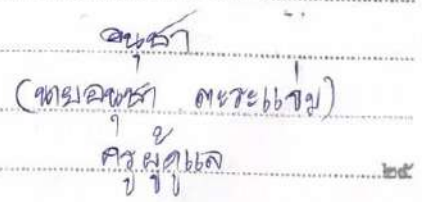 อนุชา
(นายอนุชา ตะระแข่ม)
ครูผู้ดูแล
๒๕